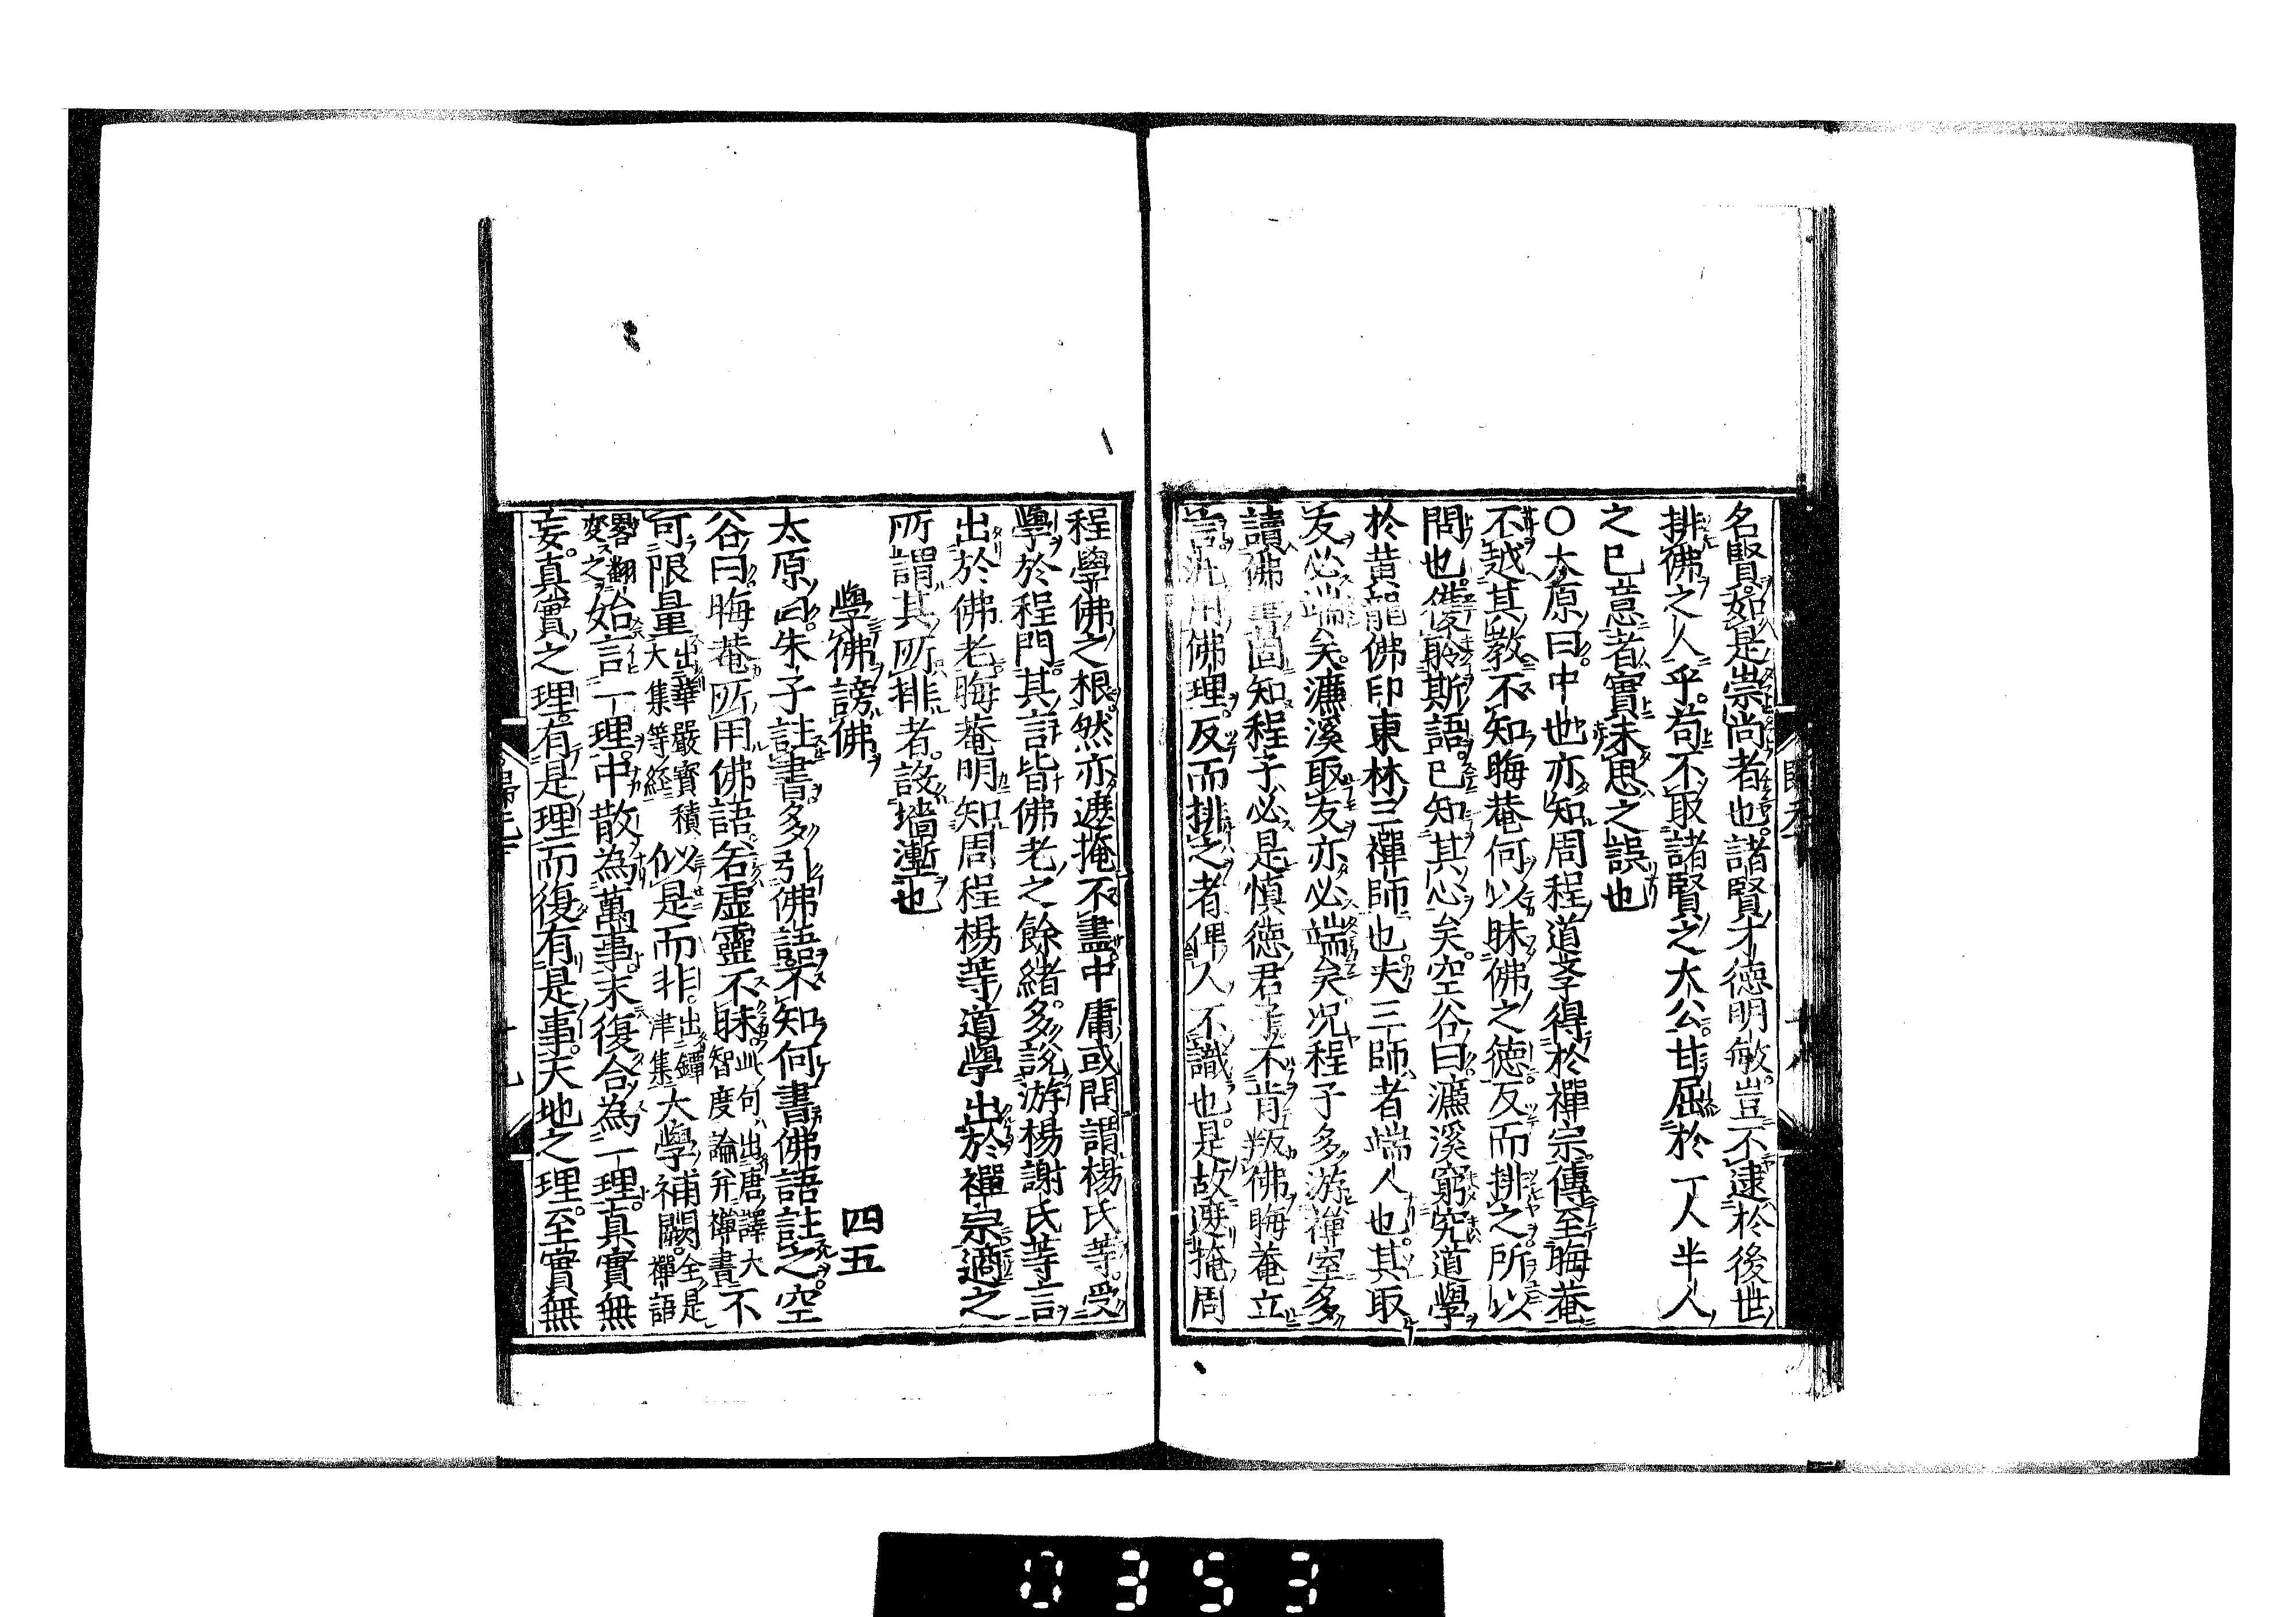 名賢。如是崇尚者也。諸賢才德明敏。豈不逮於後世
排佛之人乎。苟不取諸賢之大公。甘屈於一人半人
之已意者實未思之誤也
〇太原曰。中也亦知周程道學得於禪宗。傳至晦菴
不越其教。不知晦菴何以昧佛之德。反而排之。所以
問也。優聆斯語已知其心矣。空谷曰。濂溪窮究道學
於黃龍佛印東林三禪師也。夫三師者端人也。其取
友必端矣。濂溪取友亦必端矣。况程子多游禪室多
讀佛書固知程子必是慎德君子。不肯叛佛晦菴立
言沘用佛理。反而排之者俾人不識也。是故遮掩周
程學佛之根。然亦遮掩不盡。中庸或問謂楊氏等。受
學於程門。其言皆佛老之餘緒。多說游楊謝氏等言
出於佛老。晦菴明知周程楊等道學出於禪宗。適之
所謂其所排者。設墻塹也
學佛謗佛 四五
太原曰。朱子註書。多引佛語。不知何書佛語註之。空
谷曰。晦菴所用佛語。若虛靈不昧。此句出唐譯大智度論并禪書不
可限量出華嚴寶積大集等經似是而非。出鐔津集大學補闕。全是禪語
畧翻變之始言一理。中散為萬事。末復合為一理。真實無
妄。真實之理。有是理而復有是事。天地之理。至實無
歸元